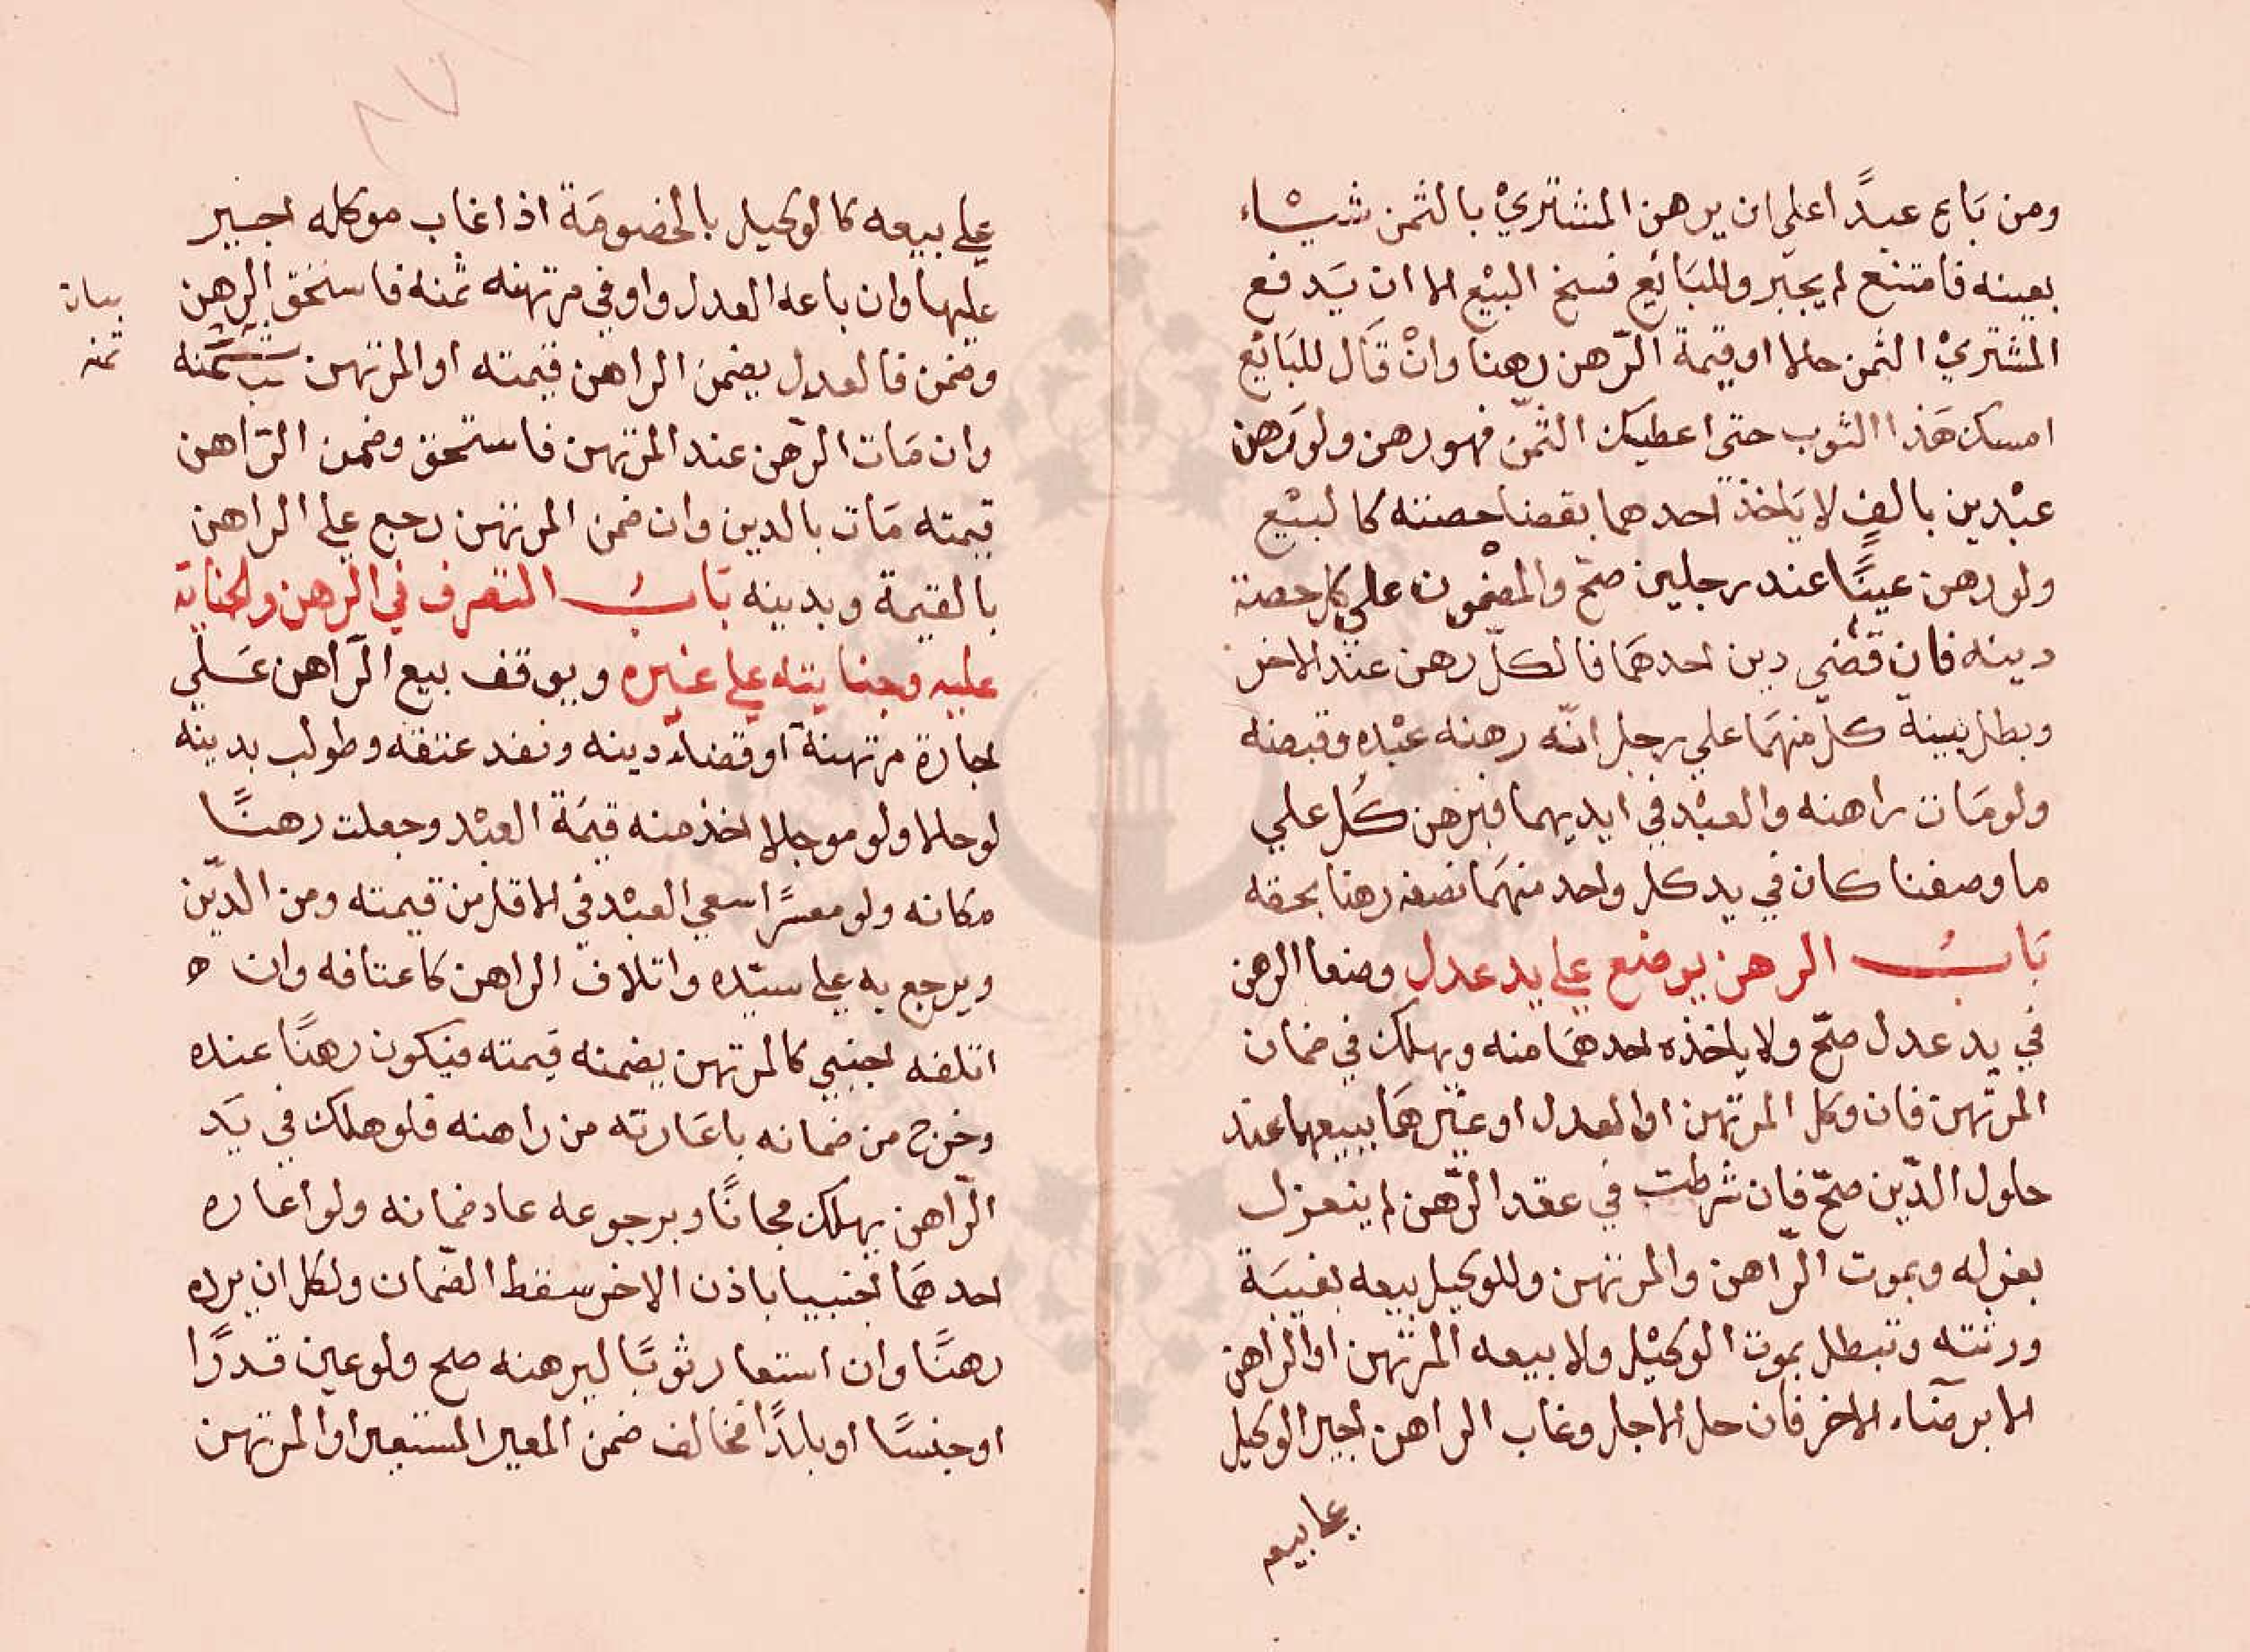 ومن بَاع عبدًا علي ان يرهن المشتريْ بالثمن شيْاء
بعينه فامتنع لم يجبر وللبَائِع فسخ البيْع الا ان يَدفع
المشتريْ الثمن حالا او قيمة الرّهن رهنا وانْ قَال للبَائع
امسك هَذا الثوب حتى اعطيك الثمنّ فهو رهن ولو رَهن
عبْدين بالفٍ لا يَاخذ احدهما بقضا حصته كالبيْع
ولو رهن عينًا عند رجلين صحّ والمضْمون علي كل حصة
دينه فان قضي دين احدهمَا فالكلّ رهن عند الاخر
وبطل بينة كلّ منهمَا علي رجل انّه رهنه عبْده وقبضه
ولو مَات راهنه والعبْد في ايديهما فبرهن كُل علي
ما وصفنا كان في يد كل واحد منهمَا نصفه رهنا بحقه
بَابُ الرهن يوضع علي يد عدل وضعا الرهن
في يد عدل صحّ ولا ياخذه احدهمَا منه ويهلك في ضمان
المرتهن فان وكل المرتهن او العدل او غيْرهمَا ببيعها عند
حلول الدّين صحّ فان شرطت في عقد الرّهن لم ينعزل
بعزله وبموت الرّاهن والمرتهن وللوكيل بيعه بغيبَة
ورثته وتبطل بموت الوكيْل ولا بيعه المرتهن او الراهن
الا برضَاء الاخر فان حل الاجل وغاب الراهن اجبر الوكيل
علي بيعه
علي بيعه كالوكيل بالخصومَة اذا غاب موكله اجبر
عليها وان باعه العدل واوفي مرتهنه ثمنه فاستحق الرهن
وضمن فالعدل يضمن الراهن قيمته او المرتهن ثمنه
وان مَات الرّهن عند المرتهن فاستحق وضمن الرّاهن
قيمته مَات بالدين وان ضمن المرتهن رجع علي الراهن
بالقيمة وبدينه بَابُ التصرف في الرهن والجناية
عليه وجنايته علي غيره ويوقف بيع الرّاهن عَلي
اجازة مرتهنه او قضاء دينه ونفد عتقه وطولب بدينه
لو حالا ولو موجلا اخذ منه قيمَة العبْد وجعلت رهنًا
مكانه ولو معسرًا سعي العبْد في الاقل من قيمته ومن الدّين
ويرجع به علي سيّده واتلاف الراهن كاعتاقه وان ه
اتلفه اجنبي كالمرتهن يضمنه قيمته فيكون رهنًا عنده
وخرج من ضمانه باعَارته من راهنه فلو هلك في يَد
الرّاهن يهلك مجانًا وبرجوعه عاد ضمانه ولو اعاره
احدهمَا اجنبيا باذن الاخر سقط الضمان ولكل ان يرده
رهنًا وان استعار ثوبًا ليرهنه صح ولو عين قدرًا
او جنسًا او بلدًا فخالف ضمن المعير المستعير او المرتهن
بيان
ثمنه